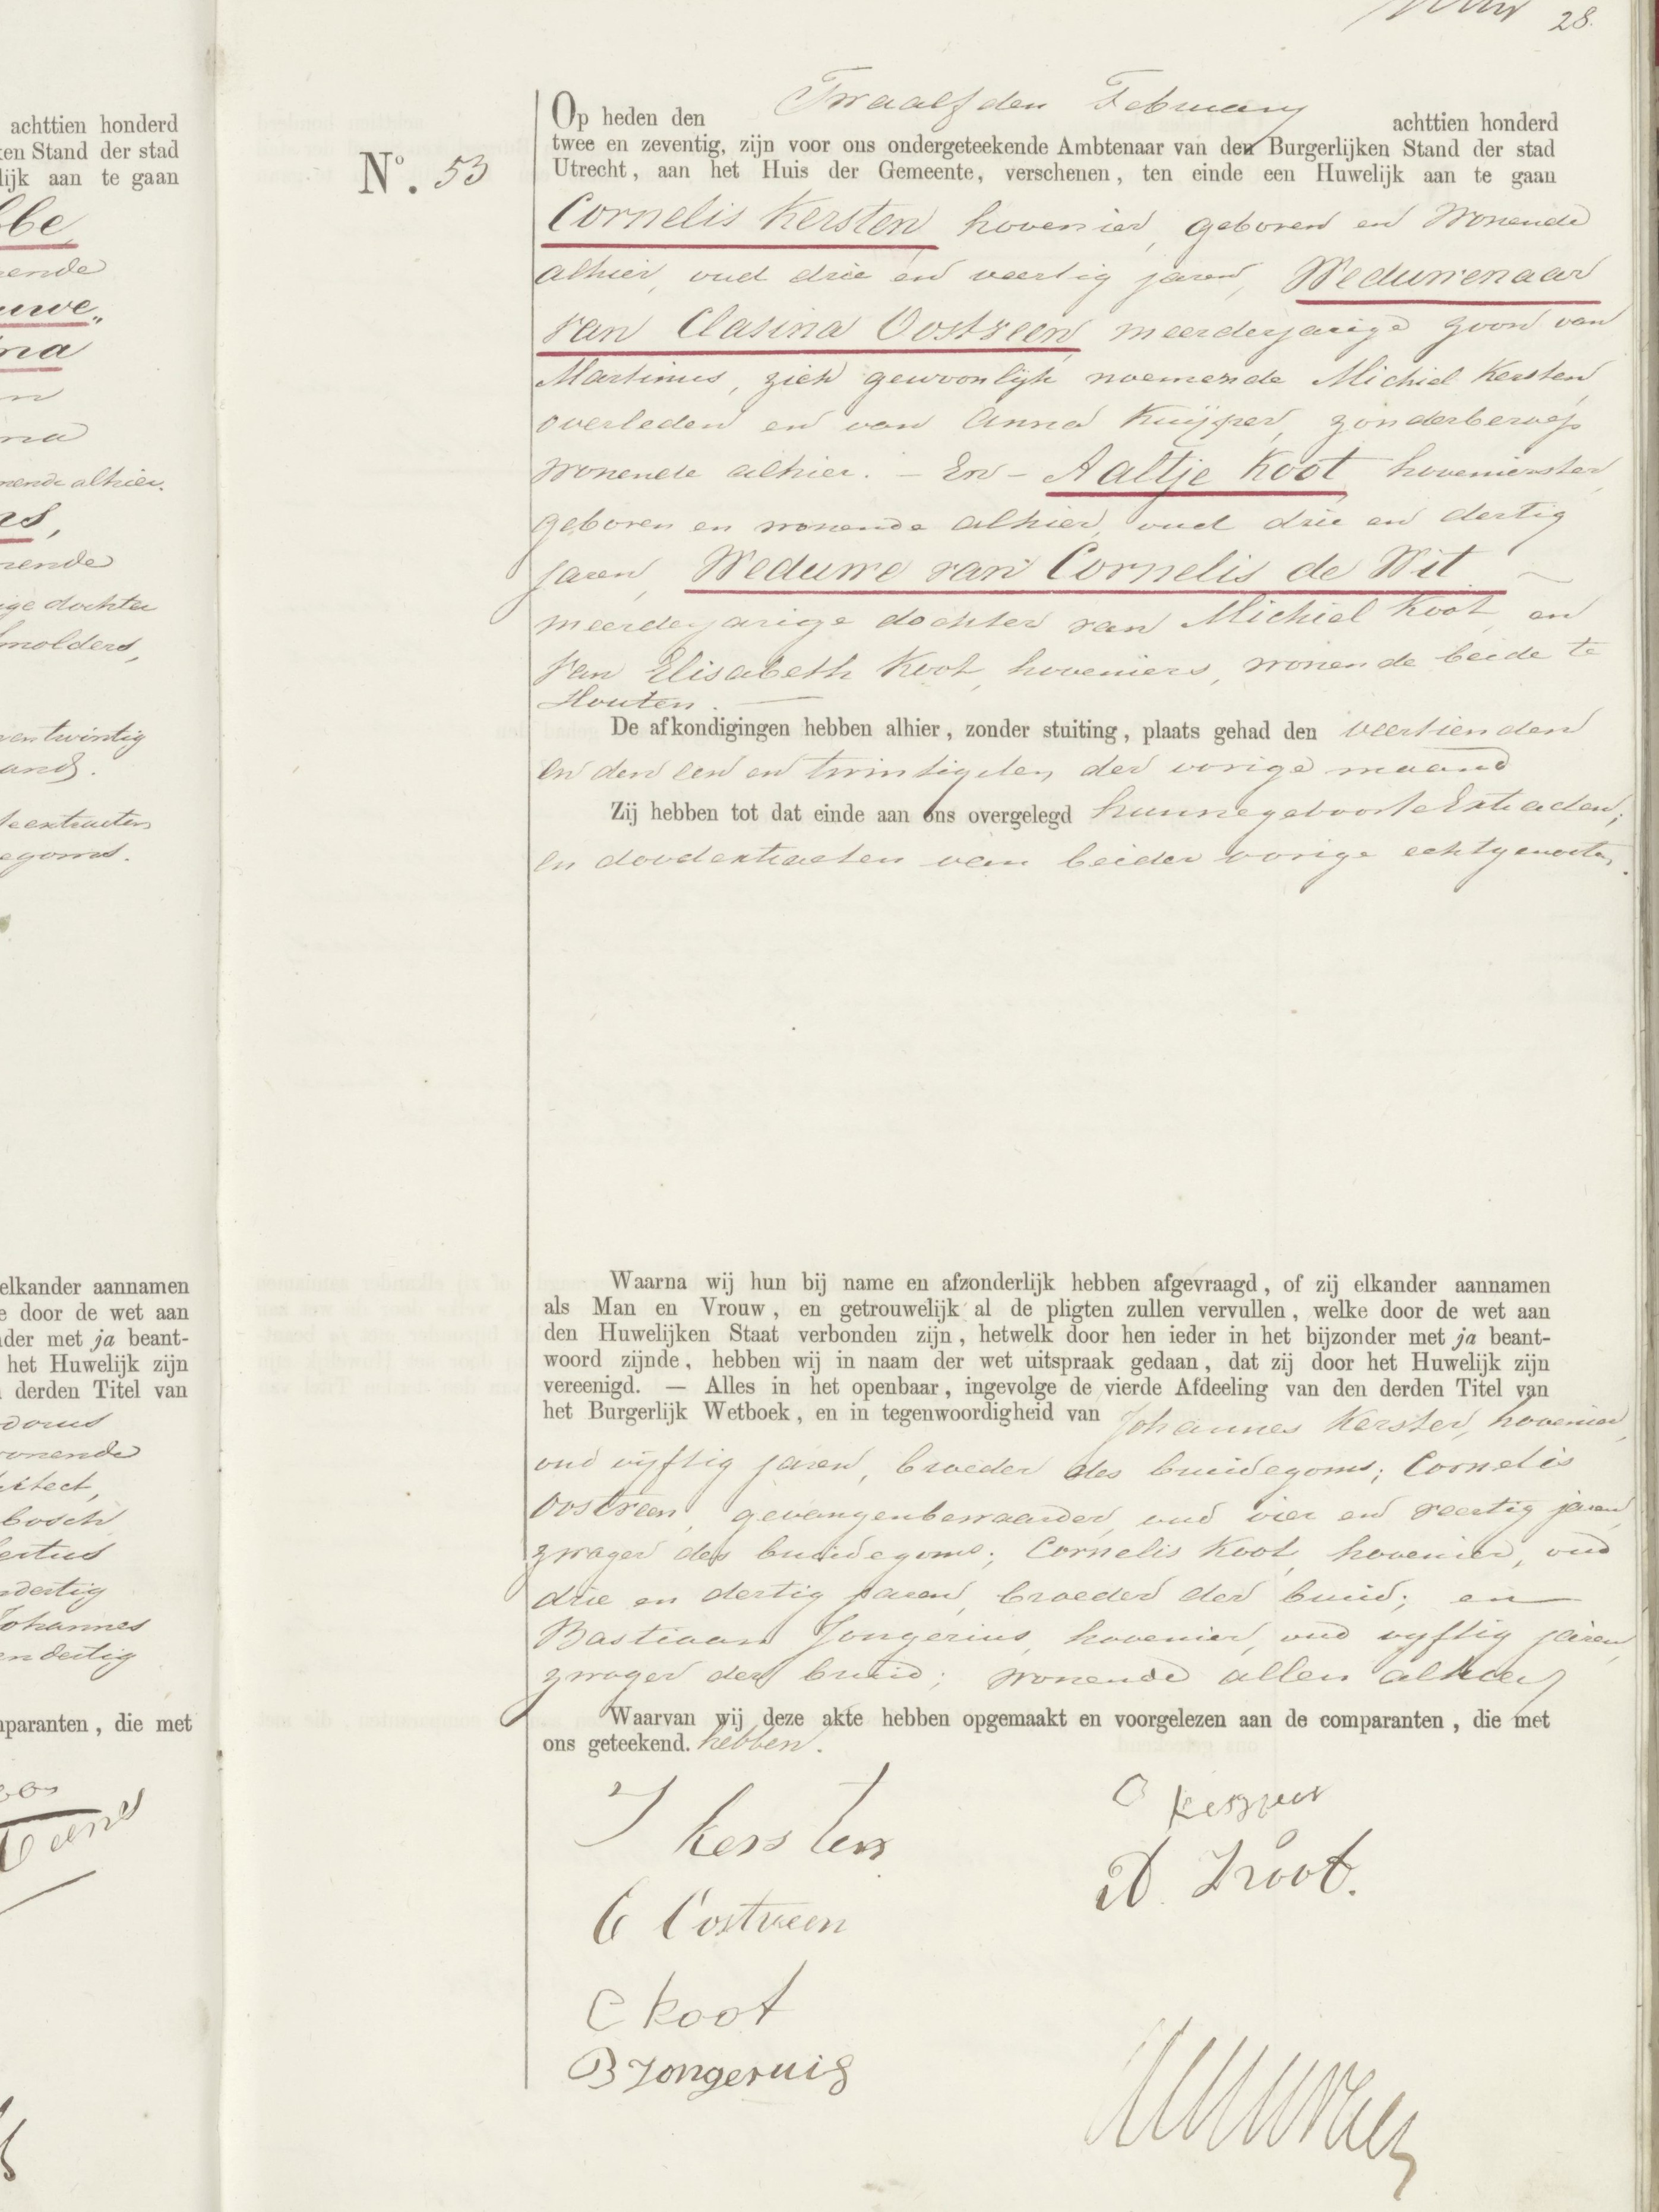 28.
achttien honderd
en Stand der stad
lijk aan te gaan
bbe
ende
uwe„
na
n
na
nende alhier.
rs,
rende
ige dochter
molders,
en twintig
and.
extracten
egoms.
elkander aannamen
e door de wet aan
der met ja beant-
het Huwelijk zijn
derden Titel van
dorus
onende
itect,
bosch
ertus
ndertig
Johannes
en dertig
mparanten, die met
N°. 53
Op heden den Twaalfden February achttien honderd
twee en zeventig, zijn voor ons ondergeteekende Ambtenaar van den Burgerlijken Stand der stad
Utrecht, aan het Huis der Gemeente, verschenen, ten einde een Huwelijk aan te gaan
Cornelis Kersten hovenier, geboren en wonende
alhier, oud drie en veertig jaren, Weduwenaar
van Clasina Oostveen meerderjarige zoon van
Martinus, zich gewoonlijk noemende Michiel Kersten
overleden en van Anna Kuijper, zonder beroep
wonende alhier. – En – Aaltje Koot hovenierster,
geboren en wonende alhier, oud drie en dertig
jaren, Weduwe van Cornelis de Wit
meerderjarige dochter van Michiel Koot en
van Elisabeth Koot, hoveniers, wonende beide te
Houten.
De afkondigingen hebben alhier, zonder stuiting, plaats gehad den veertienden
en den een en twintigsten der vorige maand
Zij hebben tot dat einde aan ons overgelegd hunne geboorte Extracten;
en doodextracten van beider vorige echtgenooten.
Waarna wij hun bij name en afzonderlijk hebben afgevraagd, of zij elkander aannamen
als Man en Vrouw, en getrouwelijk al de pligten zullen vervullen, welke door de wet aan
den Huwelijken Staat verbonden zijn, hetwelk door hen ieder in het bijzonder met ja beant-
woord zijnde, hebben wij in naam der wet uitspraak gedaan, dat zij door het Huwelijk zijn
vereenigd. — Alles in het openbaar, ingevolge de vierde Afdeeling van den derden Titel van
het Burgerlijk Wetboek, en in tegenwoordigheid van Johannes Kersten, hovenier,
oud vijftig jaren, broeder des bruidegoms; Cornelis
Oostveen, gevangenbewaarder, oud vier en veertig jaren,
zwager des bruidegoms; Cornelis Koot, hovenier, oud
drie en dertig jaren, broeder der bruid; en
Bastiaan Jongerius, hovenier, oud vijftig jaren,
zwager der bruid; wonende allen alhier
Waarvan wij deze akte hebben opgemaakt en voorgelezen aan de comparanten, die met
ons geteekend. hebben.
J Kersten
C Kersten
A Koot.
C Oostveen
C Koot
B Jongeruis